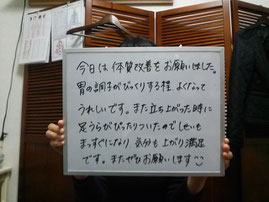 今日は体質改善をお願いしました。
胃の調子がびっくりする程 よくなって
うれしいです。また立ち上がった時に
足うらがぴったりついたので しせいも
まっすぐになり 気分も上がり満足
です。またぜひお願いします